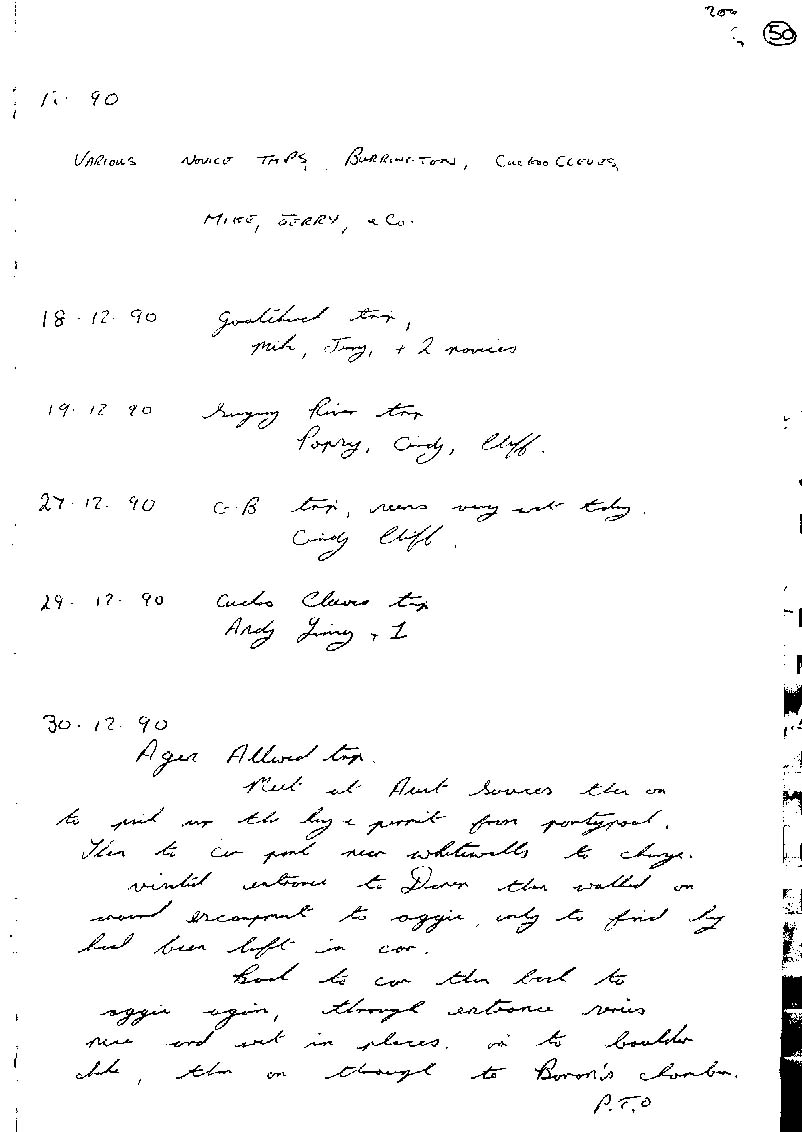 50
90
VARIOUS NOVICE TRIPS, BURRINGTON, CUCKOO CLEEVES,
MIKE, JERRY, & Co.
18 . 12 . 90 Goatchurch trip,
Mike, Jerry, + 2 novices
19 . 12 90 Singing River trip
Popry, Cindy, Cliff.
27 . 12 . 90 G.B trip, very wet today.
Cindy Cliff.
29 . 12 . 90 Cuckoo Cleeves trip
Andy + 1
30 . 12 . 90
Agen Allwed trip.
Meet at Aust Services then on
to pick up the key & permit from pontypool.
Then to Car park near whitewalls to change.
visited entrance to Daren then walked on
round escarpment to aggie, only to find key
had been left in car.
Back to car then back to
aggie again, through entrance series
nice and wet in places. on to boulder
choke, then on through to Baron's chamber.
P.T.O